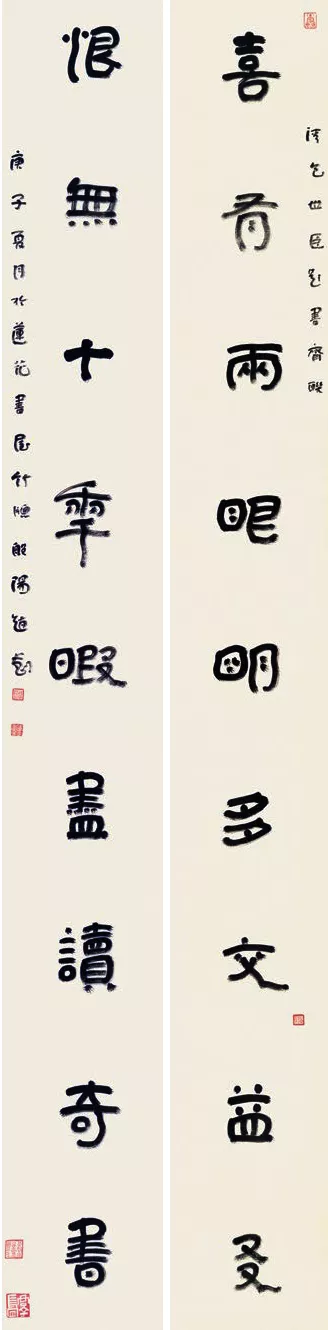 清包世臣題書齋聯
喜有兩眼明多交益友
恨無十年暇盡讀奇書
庚子夏月於蓮花書屋竹般陽趙